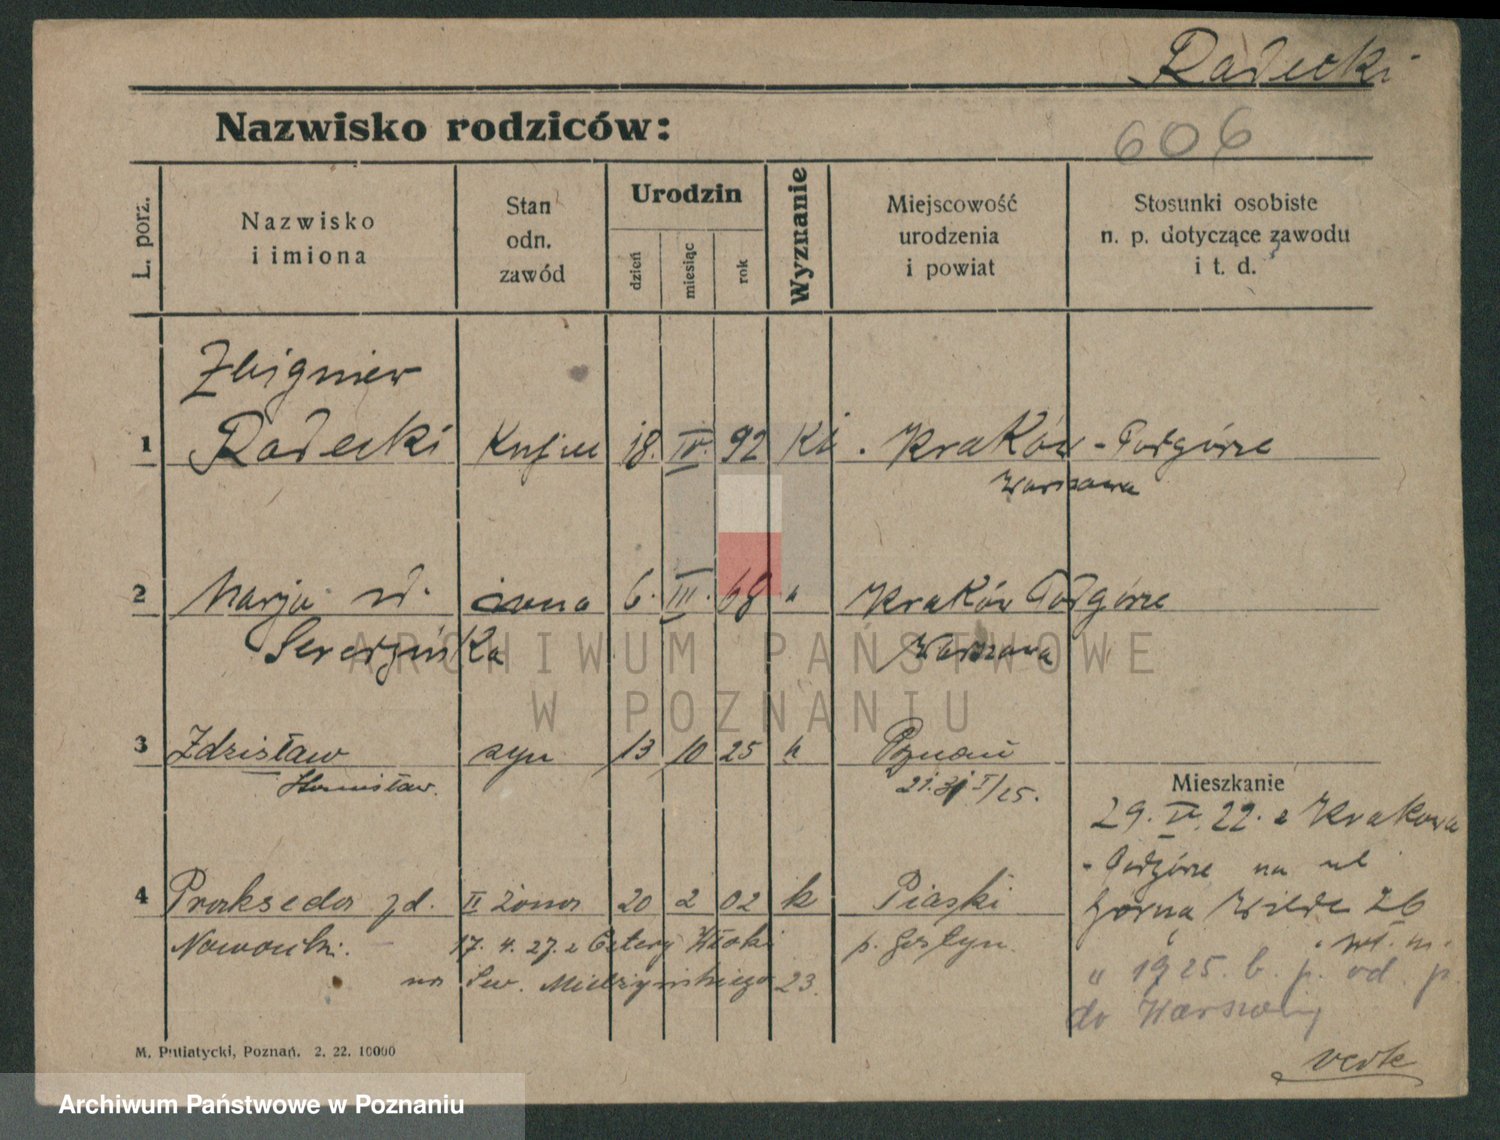 Radecki
Nazwisko rodziców:
606
L. porz.
Nazwisko
i imiona
Stan
odn.
zawód
Urodzin
dzień
miesiąc
rok
Wyznanie
Miejscowość
urodzenia
i powiat
Stosunki osobiste
n. p. dotyczące zawodu
i t. d.
Zbigniew
1 Radecki 18. IV. 92 Kraków - Podgórze
Warszawa
2 Marja 6. III. 68 Kraków Podgórze
Warszawa
3 Zdzisław syn 13 10 25 Poznań
Stanisław.
Mieszkanie
29. IV. 22. z Krakowa
- Podgórze na ul
4 Prakseda zd. II żona 20 2 02 k Piaski
Górna Wilda 26
17. 4. 27. z Cztery p. Gostyn.
na Sew. Mielżyńskiego 23.
" 1925. b. p. od. p.
do Warszawy
M. Putiatycki, Poznań. 2. 22. 10000
ARCHIWUM PAŃSTWOWE
W POZNANIU
Archiwum Państwowe w Poznaniu